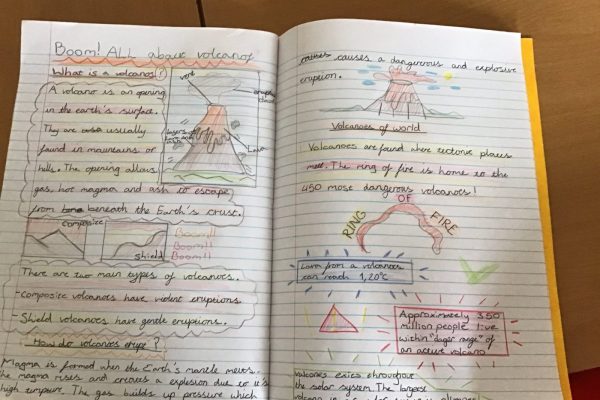 Boom! ALL about volcanos
What is a volcano?
A volcano is an opening
in the earth's surface.
They are usually
found in mountains or
hills. The opening allows
gas, hot magma and ash to escape
from beneath the Earth's crust.
vent
Lava
composite
shield
Boom!!
Boom!!
Boom!!
There are two main types of volcanoes.
-composite volcanoes have violent eruptions
-Shield volcanoes have gentle eruptions.
How do volcanoes erupt?
Magma is formed when the Earth's mantle
the magma rises and creates a explosion due to it's
high The gas builds up pressure which
causes a dangerous and explosive
eruption.
Volcanoes of world
Volcanoes are found where tectonic places
meet. The ring of fire is home to the
450 most dangerous volcanoes!
RING OF FIRE
Lava from a volcanoes
can reach 1,20°C
Approximately 350
million people live
within "dager range" of
an active volcano
volcanoes exies throughout
the solar system. The largest